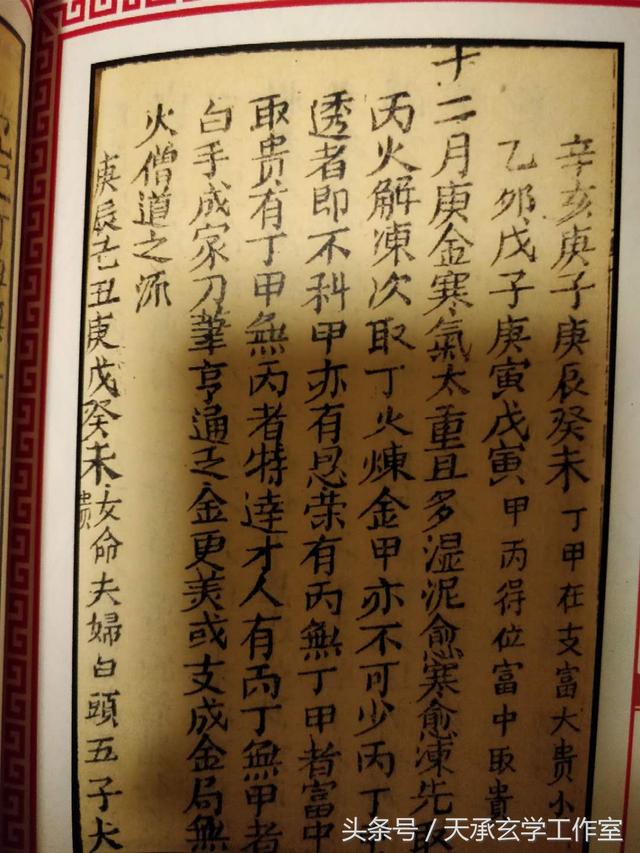 辛亥庚子庚辰癸未丁甲在支富大贵小
乙卯戊子庚寅戊寅甲丙得位富中取贵
十二月庚金寒氣太重且多湿泥愈寒愈凍先取
丙火解凍次取丁火煉金甲亦不可少丙丁
透者即不科甲亦有恩荣有丙無丁甲者富中
取贵有丁甲無丙者特達才人有丙丁無甲者
白手成家刀筆亨通乏金更美或支成金局無
火僧道之流
庚辰己丑庚戌癸未女命夫婦白頭五子大
贵
头条号/天承玄学工作室